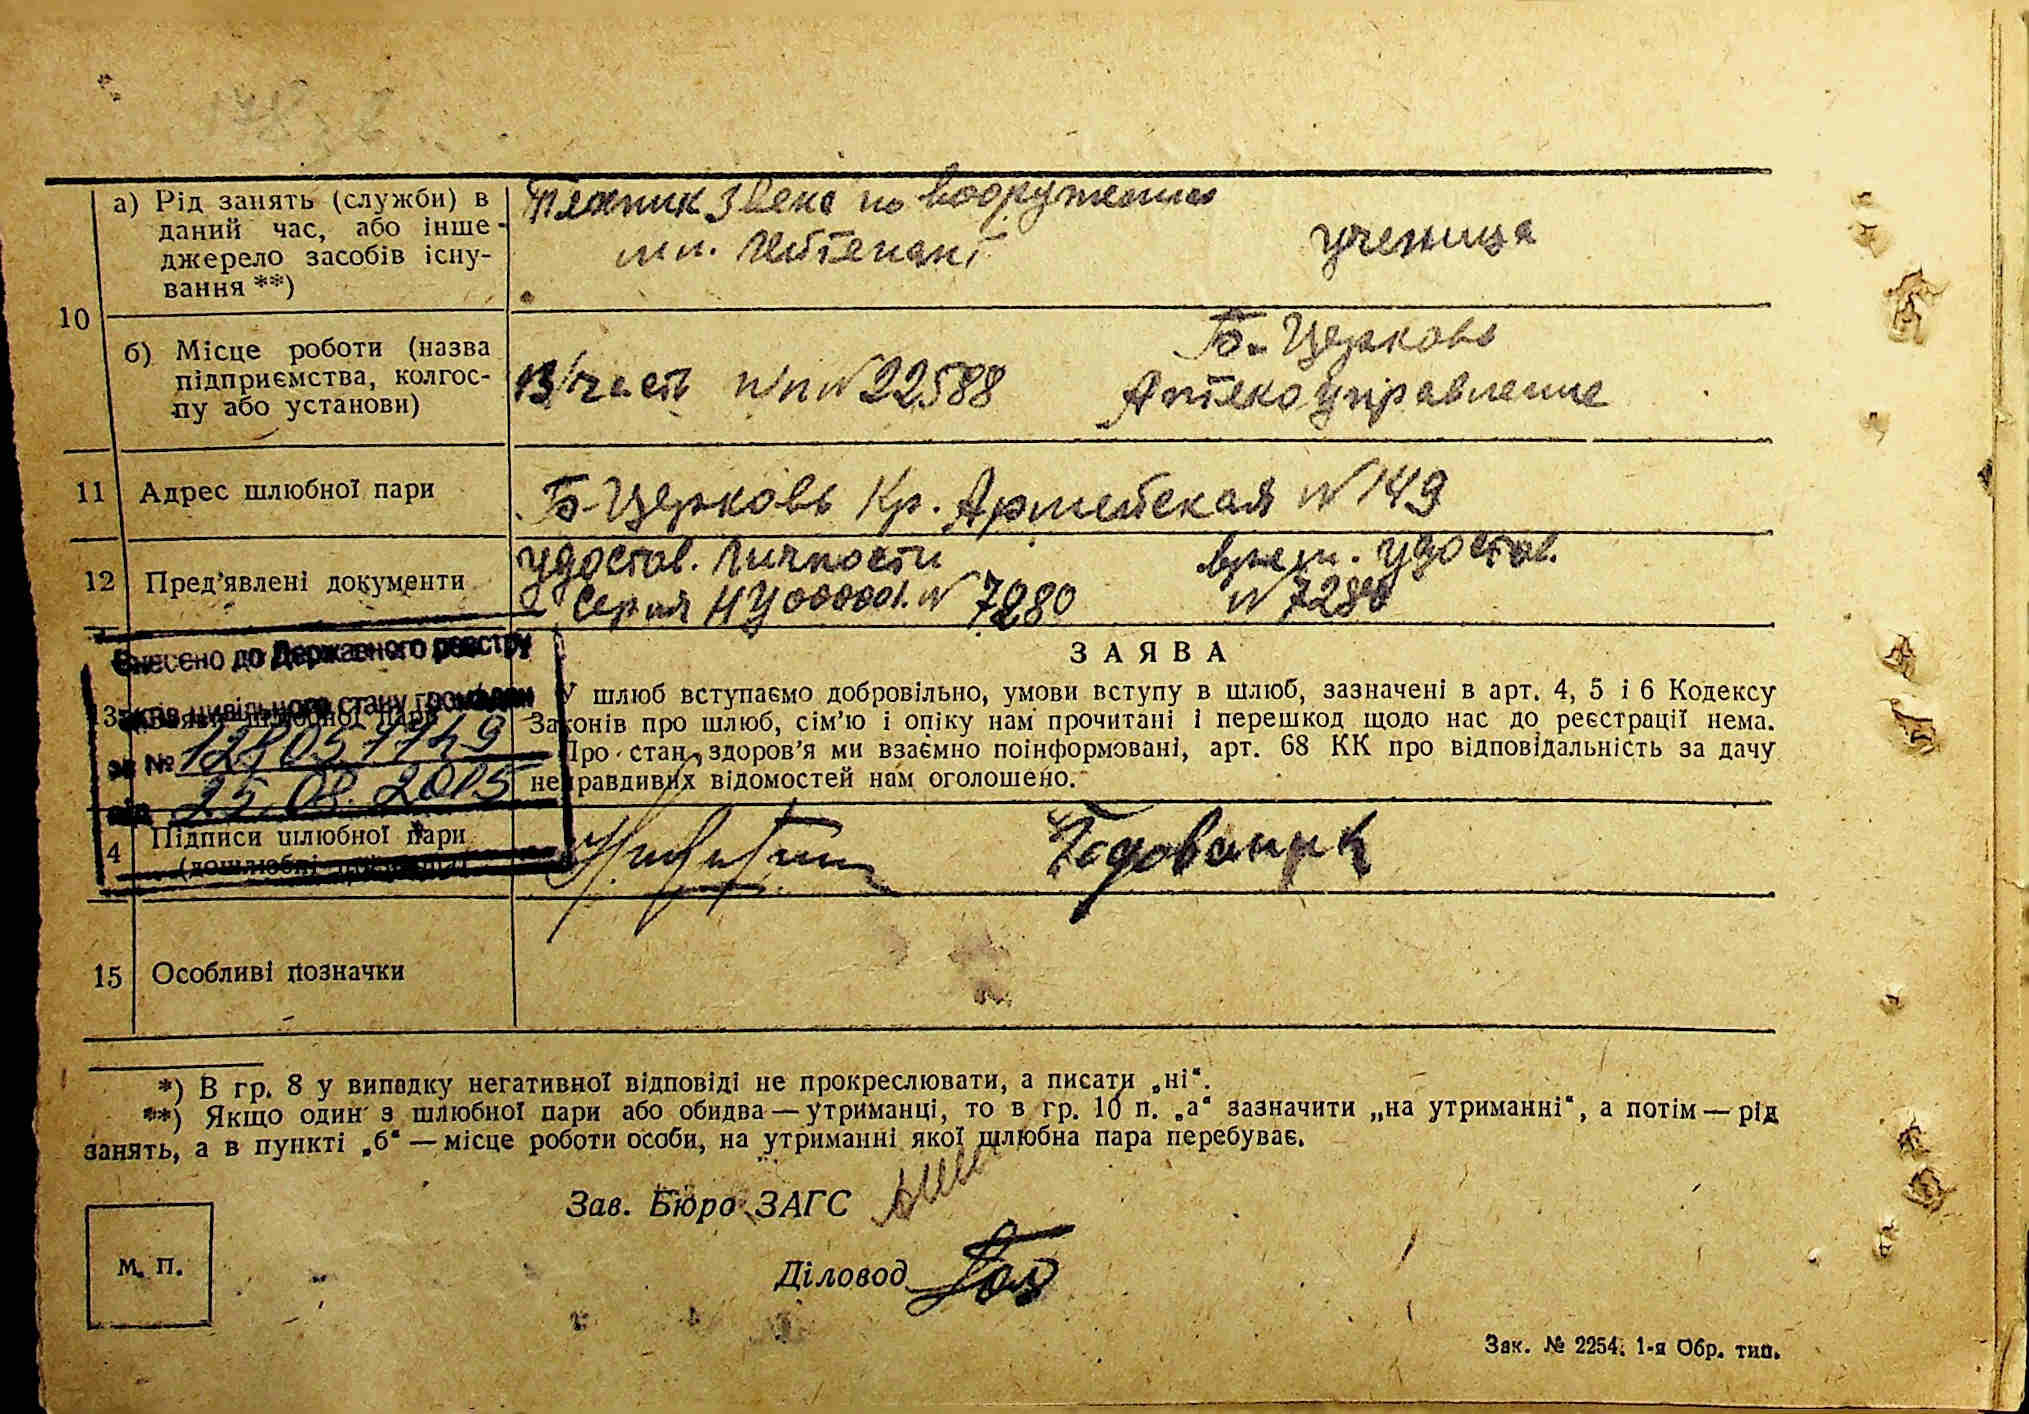 а) Рід занять (служби) в
даний час, або інше
джерело засобів існу-
вання **)
Техник звена по вооружению
мл. лейтенант
ученица
10
б) Місце роботи (назва
підприємства, колгос-
пу або установи)
В/часть п/п № 22588
Б-Церковь
Аптекоуправление
11 Адрес шлюбної пари
Б-Церковь Кр. Армейская № 149
12 Пред’явлені документи
удостов. личности
Серия НУ 000001. № 7280
врем. удостов.
№ 7280
Внесено до Державного реєстру
актів цивільного стану громадян
за №
від 25.08.2015
13 Заява шлюбної пари
ЗАЯВА
У шлюб вступаємо добровільно, умови вступу в шлюб, зазначені в арт. 4, 5 і 6 Кодексу
Законів про шлюб, сім’ю і опіку нам прочитані і перешкод щодо нас до реєстрації нема.
Про стан здоров’я ми взаємно поінформовані, арт. 68 КК про відповідальність за дачу
неправдивих відомостей нам оголошено.
14 Підписи шлюбної пари
(дошлюбні прізвища)
15 Особливі позначки
*) В гр. 8 у випадку негативної відповіді не прокреслювати, а писати „ні“.
**) Якщо один з шлюбної пари або обидва — утриманці, то в гр. 10 п. „а“ зазначити „на утриманні“, а потім — рід
занять, а в пункті „б“ — місце роботи особи, на утриманні якої шлюбна пара перебуває.
Зав. Бюро ЗАГС
Діловод
М. П.
Зак. № 2254. 1-я Обр. тип.